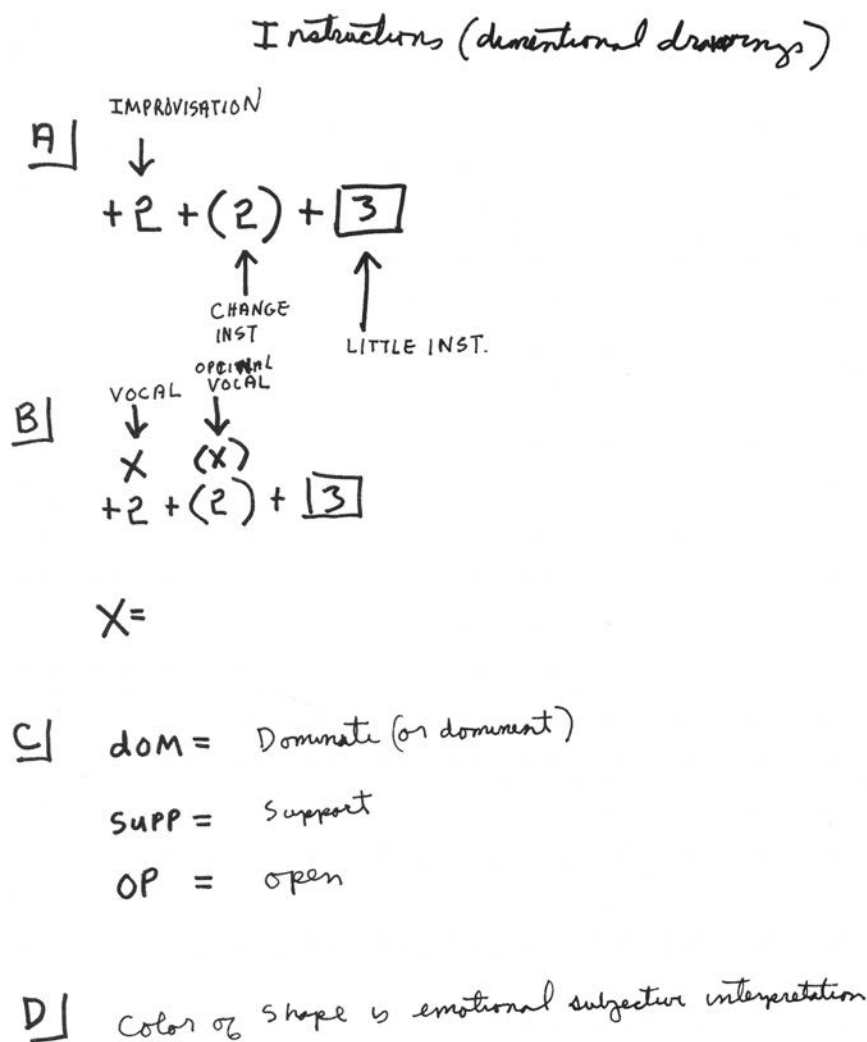 Instructions (dimentional drawings)
IMPROVISATION
A
+2 +(2) + 3
CHANGE
INST
LITTLE INST.
VOCAL
OPTIONAL
VOCAL
B
X (X)
+2 +(2) + 3
X=
C dOM = Dominate (or dominent)
SUPP = Support
OP = open
D Color of Shape is emotional subjective interpretation